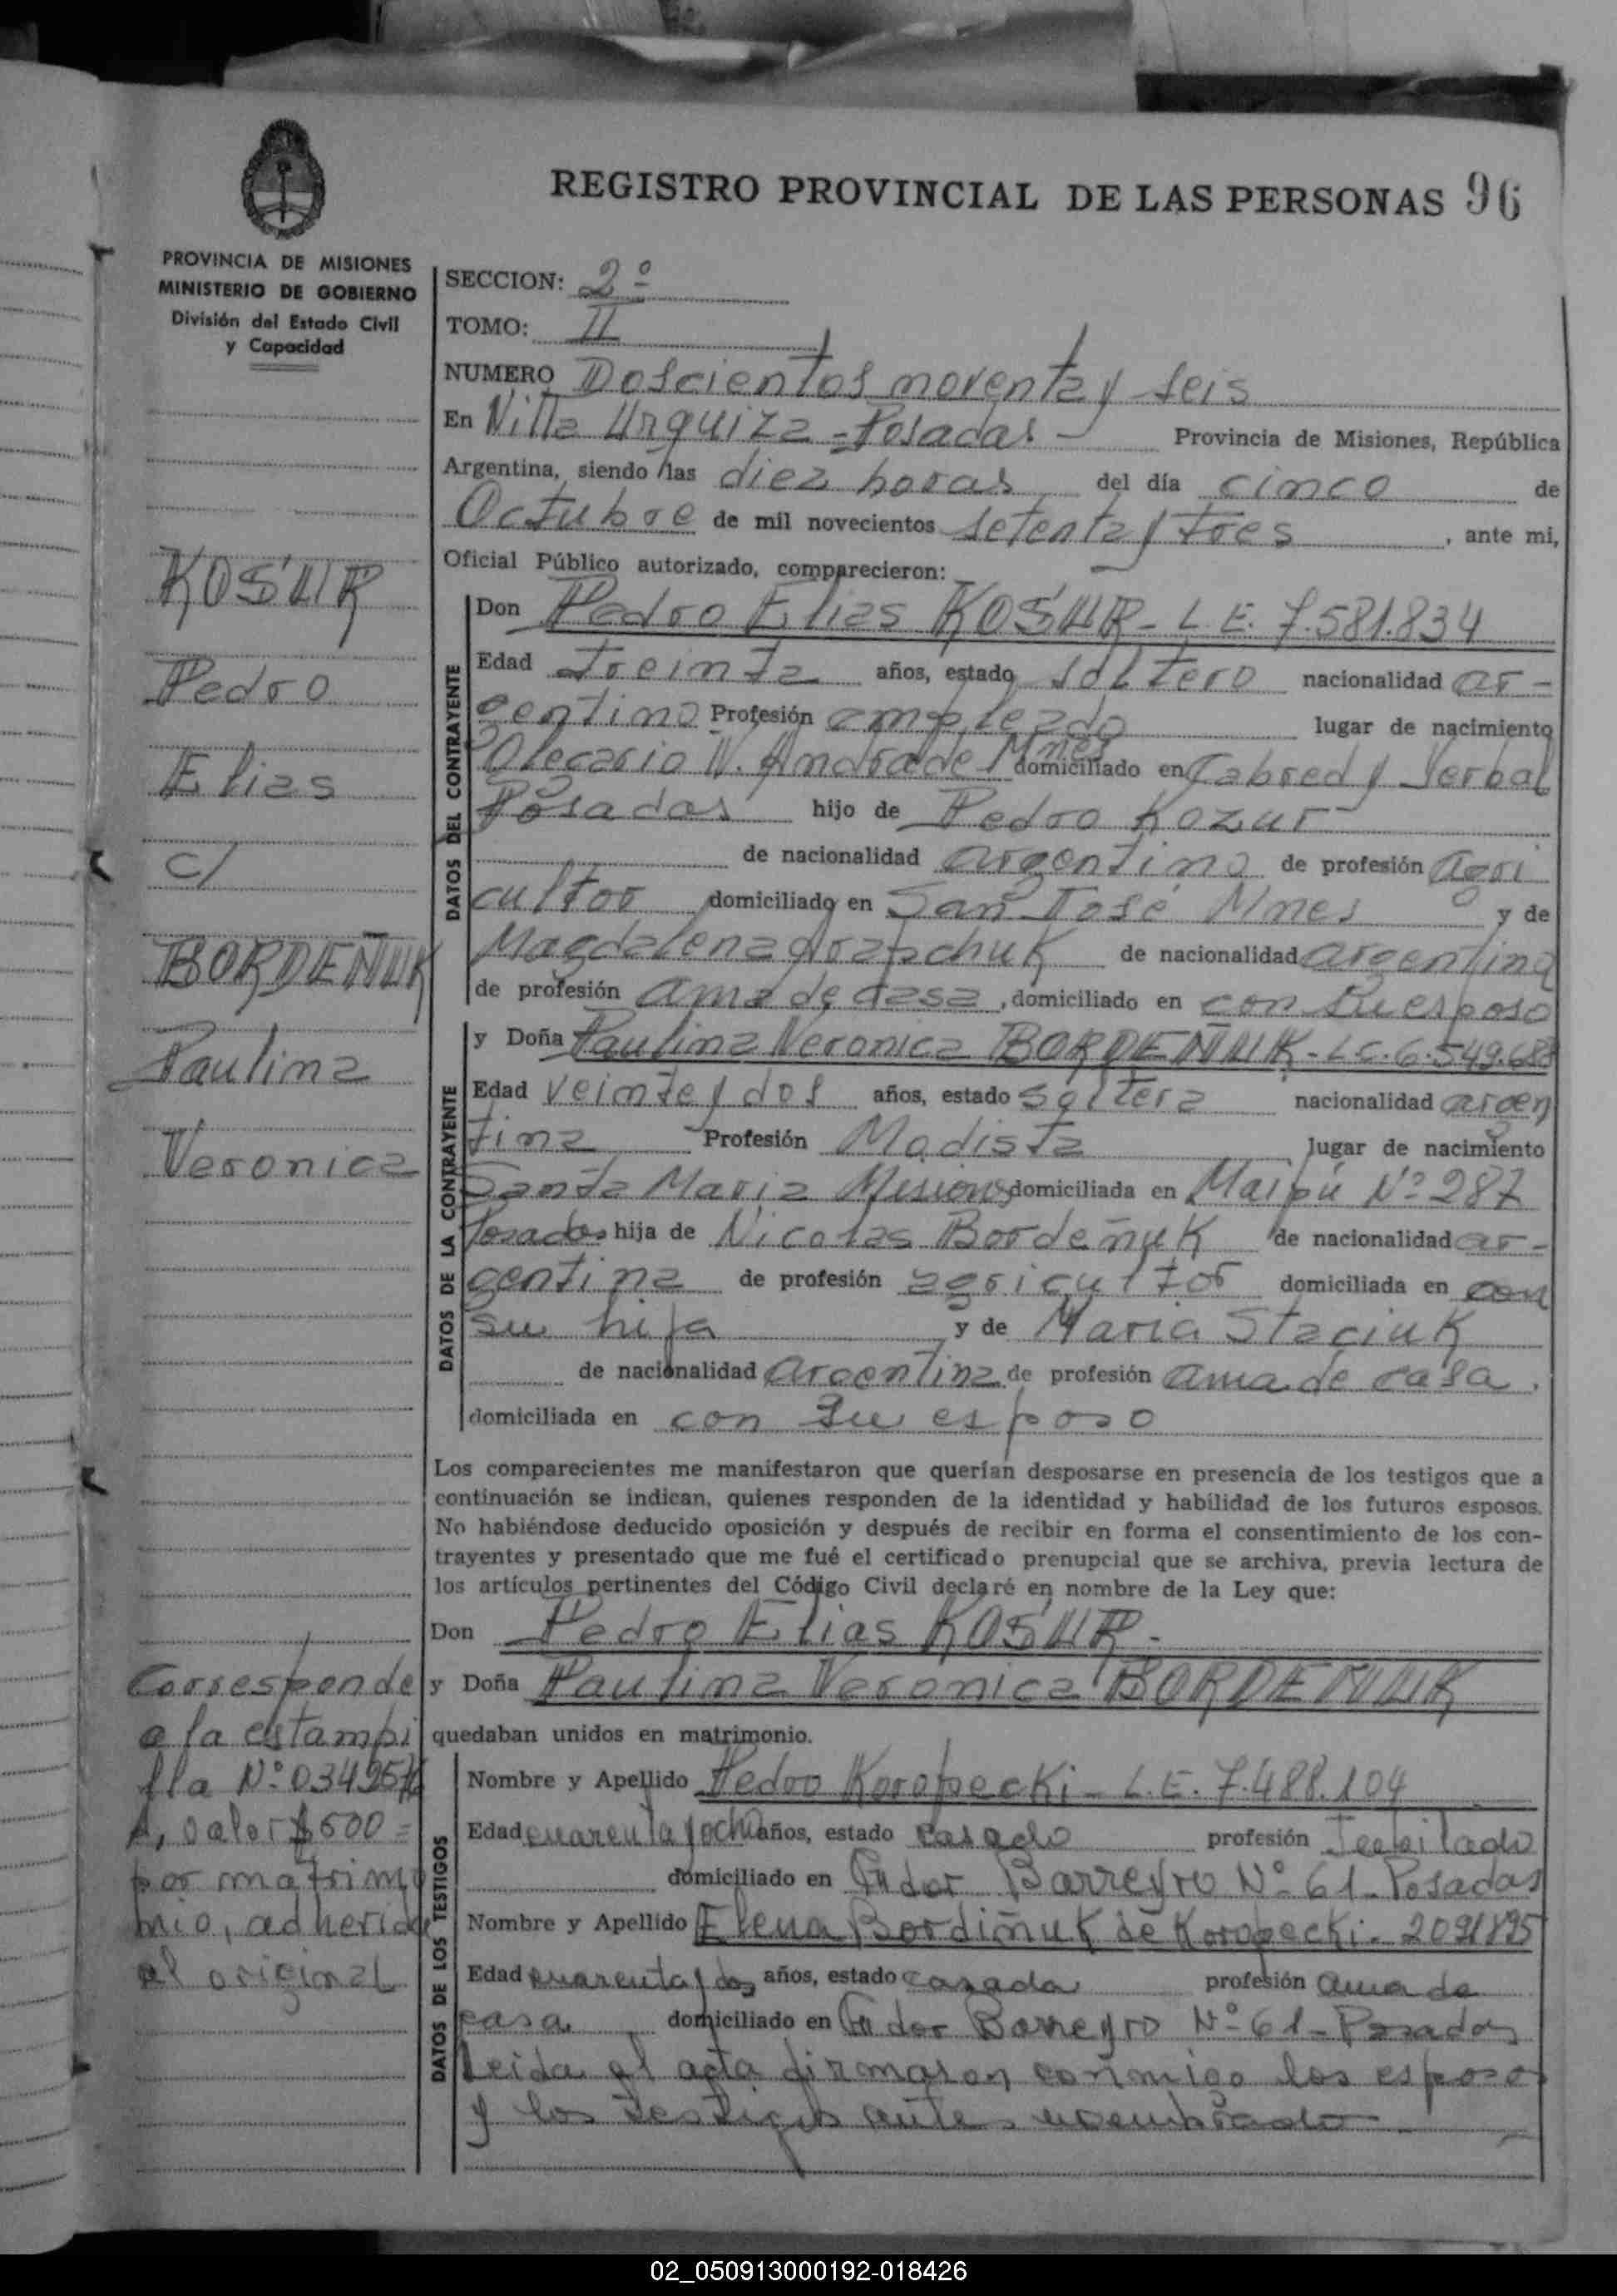 REGISTRO PROVINCIAL DE LAS PERSONAS 96
PROVINCIA DE MISIONES
MINISTERIO DE GOBIERNO
División del Estado Civil
y Capacidad
SECCION: 2º
TOMO: II
NUMERO Doscientos noventa y seis
En Villa Urquiza - Posadas - Provincia de Misiones, República
Argentina, siendo las diez horas del día cinco de
Octubre de mil novecientos setenta y tres, ante mi,
Oficial Público autorizado, comparecieron:
KOSUR
Pedro
Elias
c/
BORDEÑUK
Paulina
Veronica
DATOS DEL CONTRAYENTE
Don Pedro Elias KOSUR - L.E. 7.581.834
Edad treinta años, estado soltero nacionalidad ar-
gentino Profesión empleado lugar de nacimiento
Olegario V. Andrade Mnes domiciliado en Cabred y Yerbal
Posadas hijo de Pedro Kozur
de nacionalidad argentino de profesión agri
cultor domiciliado en San José Mnes y de
Magdalena de nacionalidad argentina
de profesión ama de casa, domiciliado en con su esposo
DATOS DE LA CONTRAYENTE
y Doña Paulina Veronica BORDEÑUK - L.C. 6.549.688
Edad veinte y dos años, estado soltera nacionalidad argen
tina Profesión Modista lugar de nacimiento
Santa Maria Misiones domiciliada en Maipú Nº 287
Posadas hija de Nicolas Bordeñuk de nacionalidad ar-
gentina de profesión agricultor domiciliada en con
su hija y de Maria Staciuk
de nacionalidad argentina de profesión ama de casa.
domiciliada en con su esposo
Los comparecientes me manifestaron que querían desposarse en presencia de los testigos que a
continuación se indican, quienes responden de la identidad y habilidad de los futuros esposos.
No habiéndose deducido oposición y después de recibir en forma el consentimiento de los con-
trayentes y presentado que me fué el certificado prenupcial que se archiva, previa lectura de
los artículos pertinentes del Código Civil declaré en nombre de la Ley que:
Don Pedro Elias KOSUR -
y Doña Paulina Veronica BORDEÑUK
quedaban unidos en matrimonio.
Corresponde
a la estampi
lla Nº
A, valor $500=
por matrimo
nio, adherida
al original
DATOS DE LOS TESTIGOS
Nombre y Apellido Pedro Koropecki - L.E. 7.488.104
Edad cuarenta y ocho años, estado casado profesión Jubilado
domiciliado en Gdor Barreyro Nº 61 - Posadas
Nombre y Apellido Elena Bordiñuk de Koropecki - 2091895
Edad cuarenta y dos años, estado casada profesión ama de
casa domiciliado en Gdor Barreyro Nº 61 - Posadas
Leida el acta firmaron conmigo los esposos
y los testigos antes nombrado
02_050913000192-018426